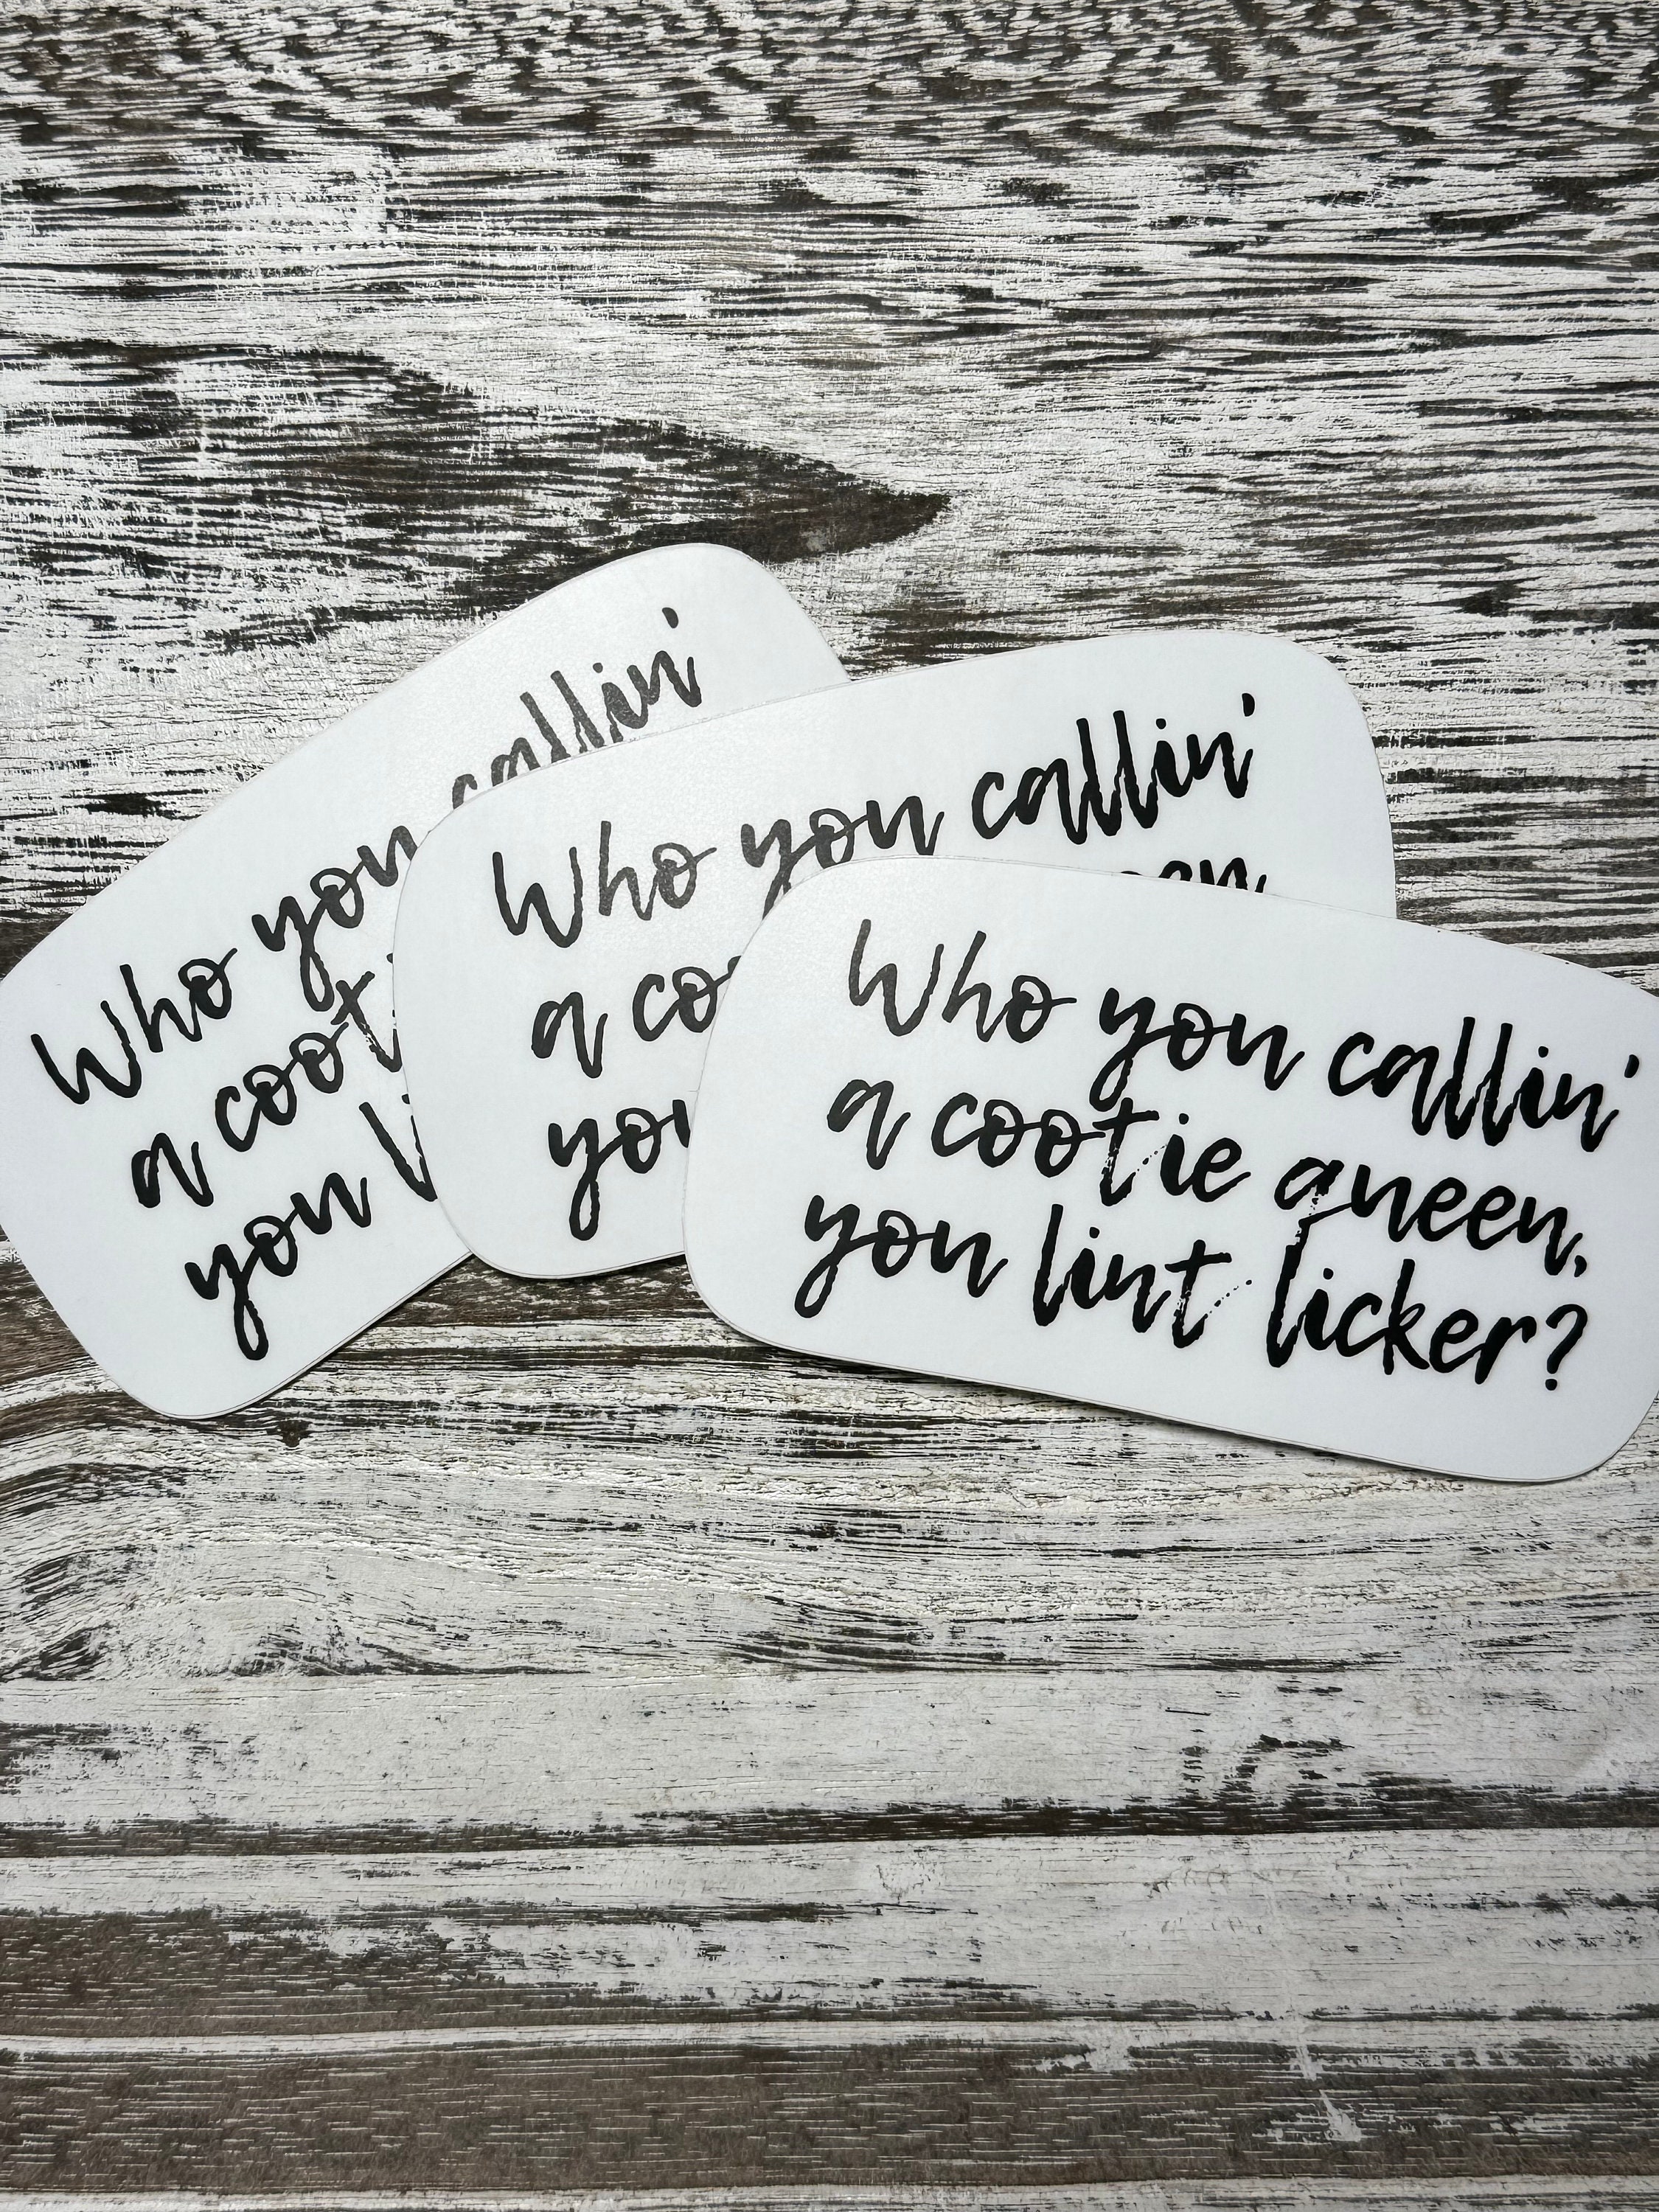 Who you callin'
a coot
you li
Who you callin'
een
a coo
you
Who you callin'
a cootie queen,
you lint licker?